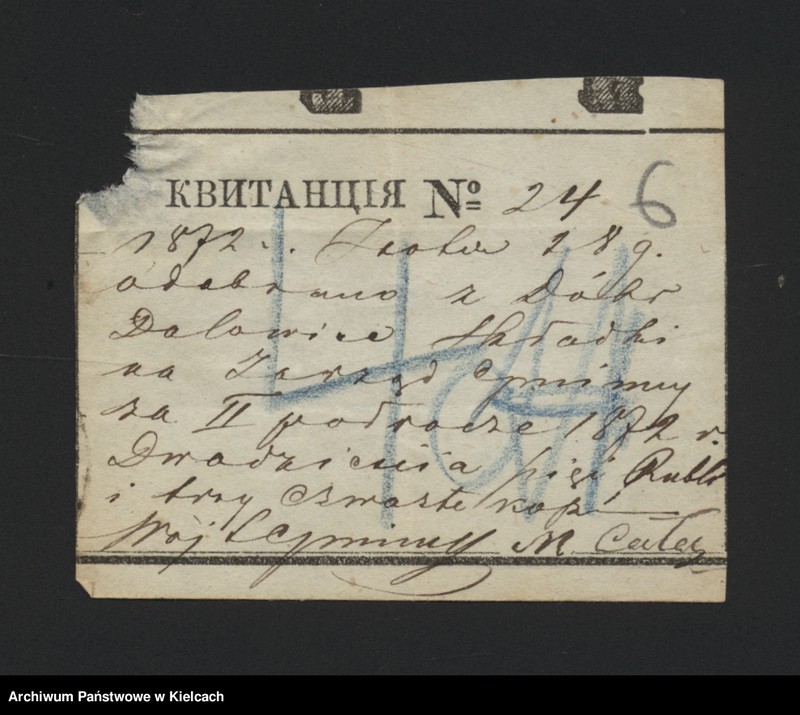 КВИТАНЦІЯ № 24 6
1872 r. 28 g.
odebrano z Dóbr
Dalowice Składki
na Zarząd Gminny
za II półrocze 1872 r.
Dwadzieścia pięć Rubli
i trzy czwarte kop
Wójt Gminny M.
Archiwum Państwowe w Kielcach